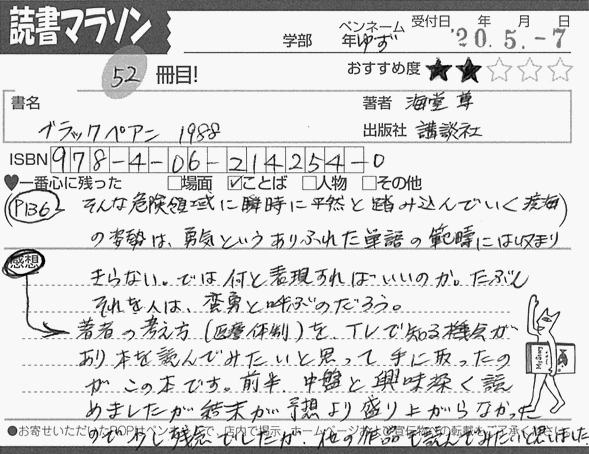 読書マラソン
学部 年 ペンネーム ゆず 受付日 年 月 日
'20.5.-7
52 冊目!
おすすめ度 ★★☆☆☆
書名 ブラックペアン 1988
著者 海堂 尊
出版社 講談社
ISBN 978-4-06-214254-0
♥一番心に残った □場面 ☑ことば □人物 □その他
P136 そんな危険領域に瞬時に平然と踏み込んでいく渡海
の姿勢は、勇気というありふれた単語の範疇には収まり
きらない。では何と表現すればいいのか。たぶん
それを人は、蛮勇と呼ぶのだろう。
感想
著者の考え方(医療体制)を、TVで知る機会が
あり本を読んでみたいと思って手に取ったの
がこの本です。前半、中盤と興味深く読
めましたが結末が予想より盛り上がらなかった
ので少し残念でしたが、他の作品も読んでみたいと思いました
●お寄せいただいたPOPはペンネームで、店内で掲示、ホームページおよび宣伝物への転載をご了承ください